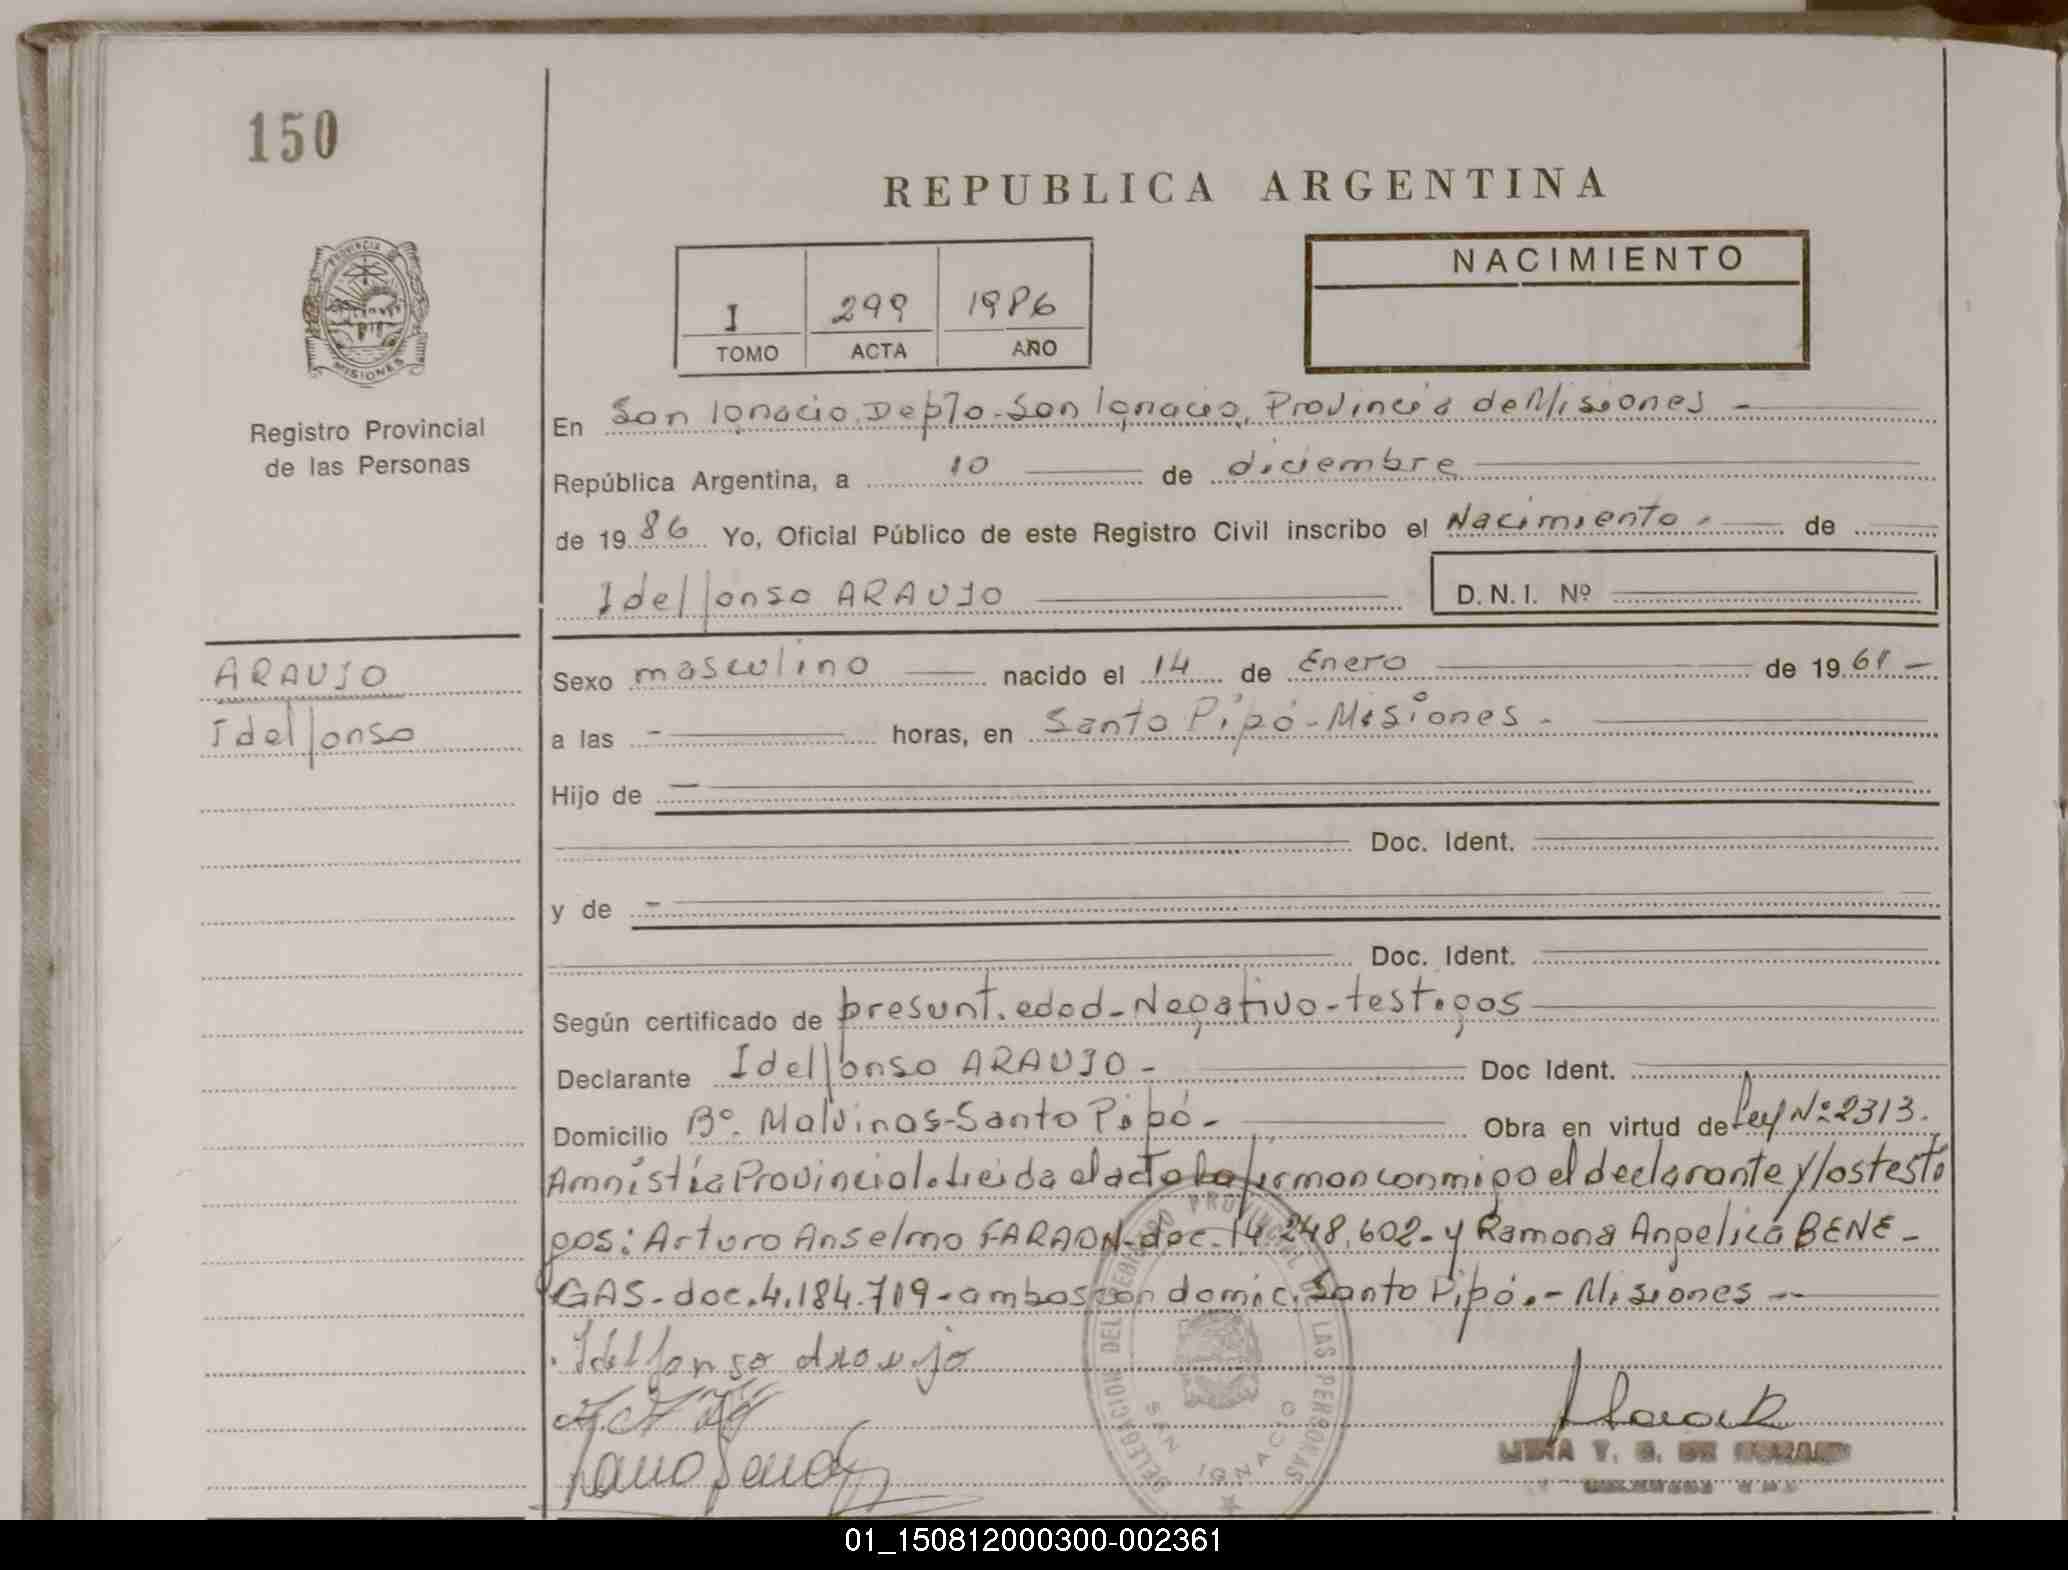 150
REPUBLICA ARGENTINA
PROVINCIA
MISIONES
NACIMIENTO
I 299 1986
TOMO ACTA AÑO
Registro Provincial
de las Personas
En San Ignacio, Depto. San Ignacio, Provincia de Misiones -
República Argentina, a 10 de diciembre
de 1986 Yo, Oficial Público de este Registro Civil inscribo el Nacimiento - de
Idelfonso ARAUJO D.N.I. Nº
ARAUJO
Idelfonso
Sexo masculino nacido el 14 de Enero de 1961 -
a las - horas, en Santo Pipó - Misiones -
Hijo de -
Doc. Ident.
y de -
Doc. Ident.
Según certificado de presunt. edad - Negativo - testigos
Declarante Idelfonso ARAUJO - Doc Ident.
Domicilio Bº. Malvinas - Santo Pipó - Obra en virtud de Ley Nº 2313.
Amnistía Provincial. Leida el acta la firman conmigo el declarante y los testi
gos: Arturo Anselmo FARAON - doc - 14.248.602 - y Ramona Angelica BENE -
GAS - doc. 4.184.719 - ambos con domic. Santo Pipó. - Misiones --
Idelfonso Araujo
DELEGACION DEL REGISTRO PROVINCIAL DE LAS PERSONAS
SAN IGNACIO
01_150812000300-002361